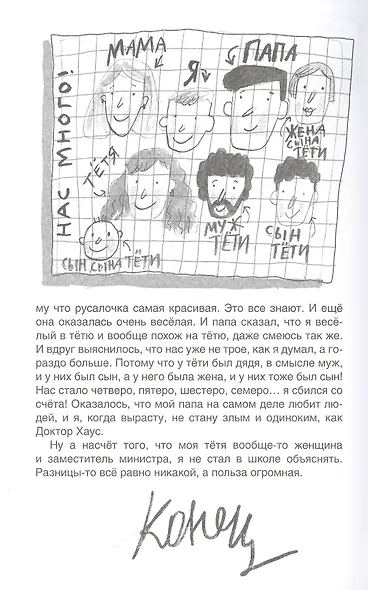 НАС МНОГО!
МАМА
Я
ПАПА
ЖЕНА
СЫНА
ТЁТИ
ТЁТЯ
МУЖ
ТЁТИ
СЫН
ТЁТИ
СЫН СЫНА ТЁТИ
му что русалочка самая красивая. Это все знают. И ещё
она оказалась очень весёлая. И папа сказал, что я весё-
лый в тётю и вообще похож на тётю, даже смеюсь так же.
И вдруг выяснилось, что нас уже не трое, как я думал, а го-
раздо больше. Потому что у тёти был дядя, в смысле муж,
и у них был сын, а у него была жена, и у них тоже был сын!
Нас стало четверо, пятеро, шестеро, семеро... я сбился со
счёта! Оказалось, что мой папа на самом деле любит лю-
дей, и я, когда вырасту, не стану злым и одиноким, как
Доктор Хаус.
Ну а насчёт того, что моя тётя вообще-то женщина
и заместитель министра, я не стал в школе объяснять.
Разницы-то всё равно никакой, а польза огромная.
Конец